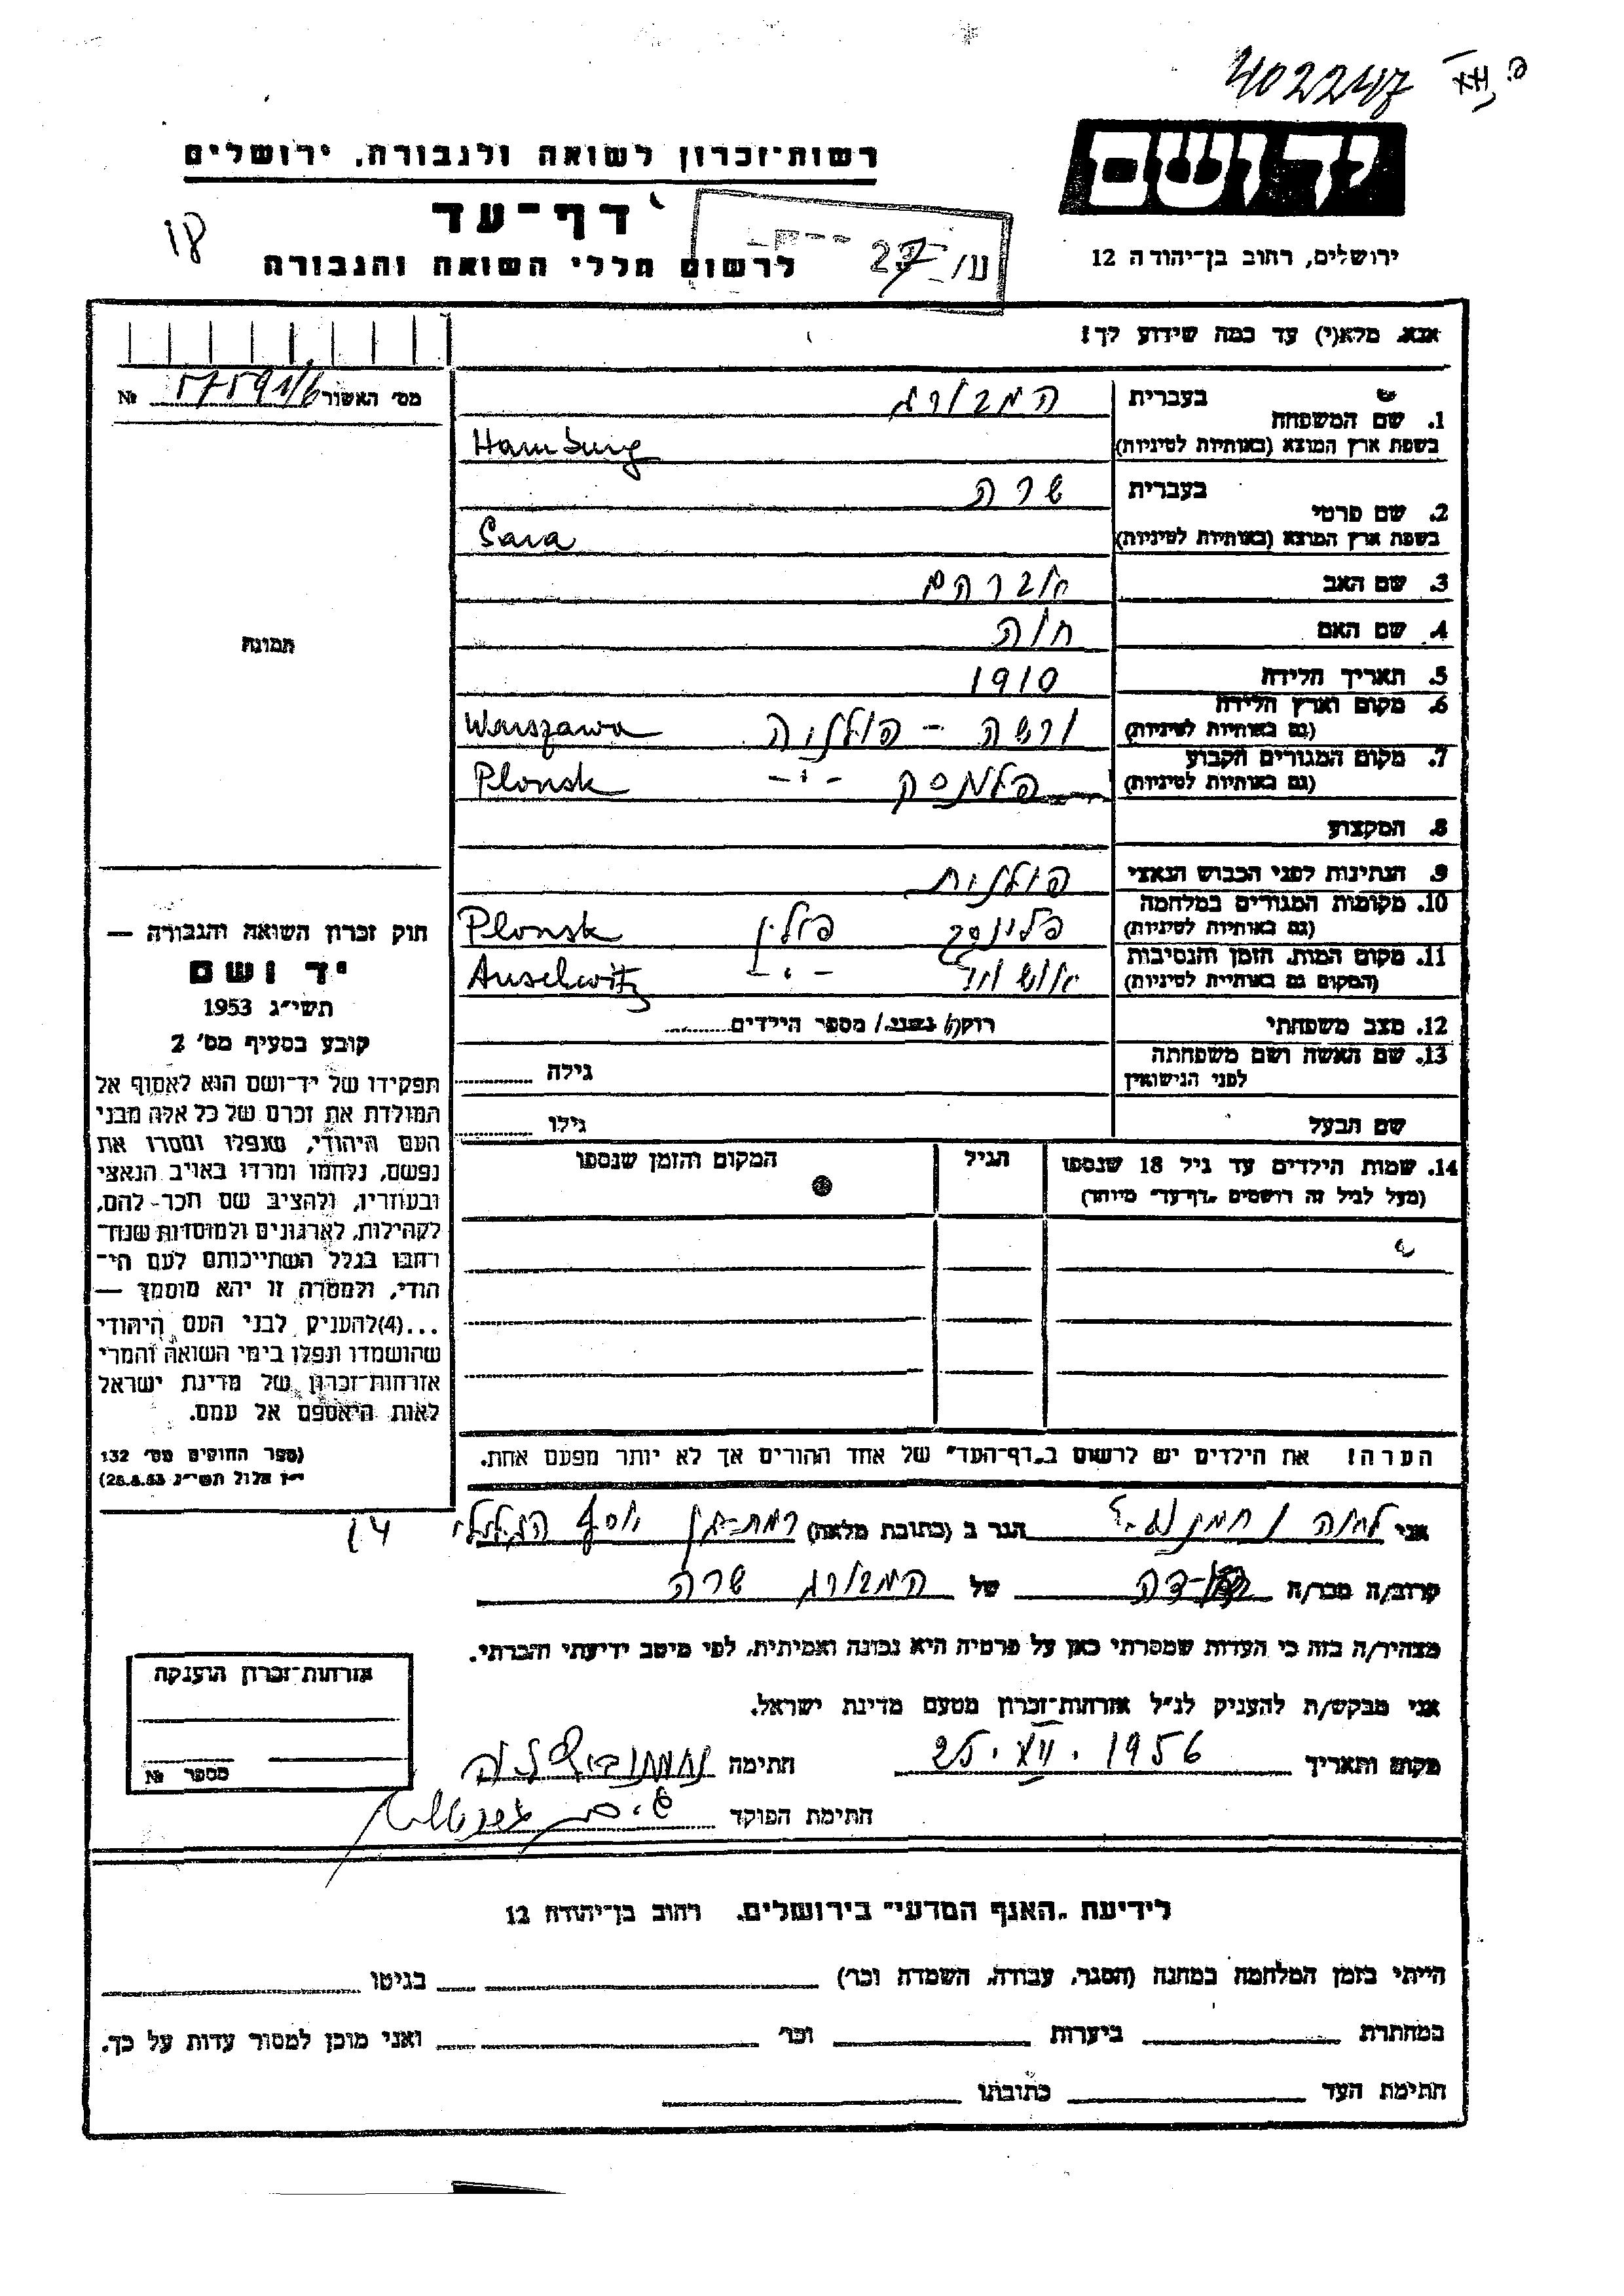 402247
יד ושם
ירושלים, רחוב בן־יהודה 12
רשות־זכרון לשואה ולגבורה, ירושלים
דף־עד
לרשום חללי השואה והגבורה
18
27
אנא, מלא(י) עד כמה שידוע לך!
מס׳ האשור 57591/6 №
תמונה
1. שם המשפחה
בעברית המבורג
בשפת ארץ המוצא (באותיות לטיניות) Hamburg
2. שם פרטי
בעברית שרה
בשפת ארץ המוצא (באותיות לטיניות) Sara
3. שם האב אברהם
4. שם האם חוה
5. תאריך הלידה 1910
6. מקום וארץ הלידה ורשה - פולניה Warszawa
(גם באותיות לטיניות)
7. מקום המגורים הקבוע פלונסק -"- Plonsk
(גם באותיות לטיניות)
8. המקצוע
9. הנתינות לפני הכבוש הנאצי פולנית
10. מקומות המגורים במלחמה פלונסק פולין Plonsk
(גם באותיות לטיניות)
11. מקום המות, הזמן והנסיבות -"- Auschwitz
(המקום גם באותיות לטיניות)
12. מצב משפחתי רוק/ה נשוי/ מספר הילדים
13. שם האשה ושם משפחתה
לפני הנישואין גילה
שם הבעל גילו
14. שמות הילדים עד גיל 18 שנספו הגיל המקום והזמן שנספו
(מעל לגיל זה רושמים „דף־עד״ מיוחד)
הערה! את הילדים יש לרשום ב„דף־העד״ של אחד ההורים אך לא יותר מפעם אחת.
חוק זכרון השואה והגבורה —
יד ושם
תשי״ג 1953
קובע בסעיף מס׳ 2
תפקידו של יד־ושם הוא לאסוף אל
המולדת את זכרם של כל אלה מבני
העם היהודי, שנפלו ומסרו את
נפשם, נלחמו ומרדו באויב הנאצי
ובעוזריו, ולהציב שם וזכר-להם,
לקהילות, לארגונים ולמוסדות שנח־
רחבו בגלל השתייכותם לעם הי־
הודי, ולמטרה זו יהא מוסמך —
...(4)להעניק לבני העם היהודי
שהושמדו ונפלו בימי השואה והמרי
אזרחות־זכרון של מדינת ישראל
לאות היאספם אל עמם.
(ספר החוקים מס׳ 132
י״ז אלול תשי״ג 28.8.53)
אני הגר ב (כתובת מלאה) רמת-גן יוסף הגלילי 14
קרוב/ה מכר/ה דודה של המבורג שרה
מצהיר/ה בזה כי העדות שמסרתי כאן על פרטיה היא נכונה ואמיתית, לפי מיטב ידיעתי והכרתי.
אני מבקש/ת להעניק לנ״ל אזרחות־זכרון מטעם מדינת ישראל.
מקום ותאריך 25.VII.1956 חתימה
חתימת הפוקד
אזרחות־זכרון הוענקה
מספר №
לידיעת „האגף המדעי״ בירושלים, רחוב בן־יהודה 12
הייתי בזמן המלחמה במחנה (הסגר, עבודה, השמדה וכר׳) בגיטו
במחתרת ביערות וכר׳ ואני מוכן למסור עדות על כך.
חתימת העד כתובתו